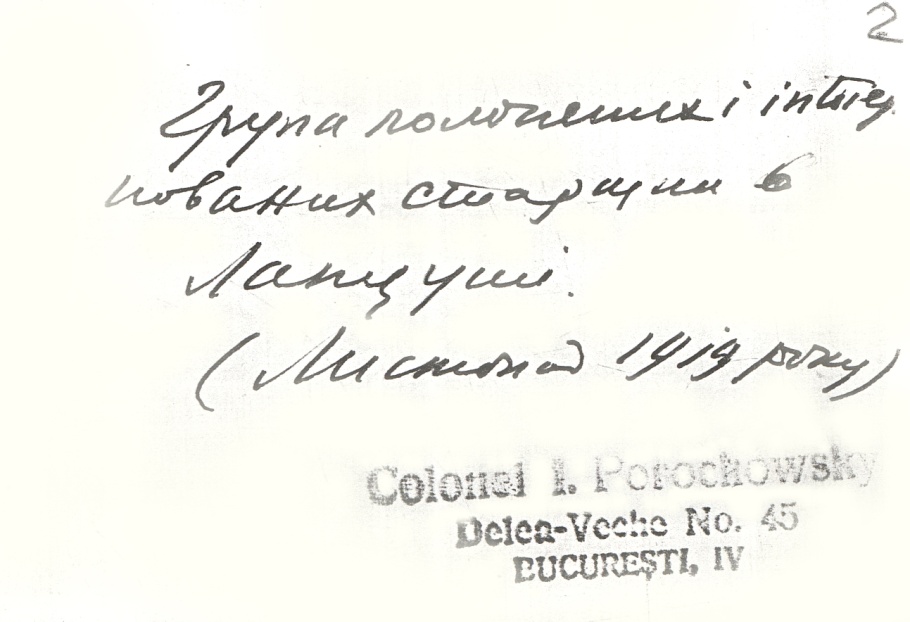 2
Група полонених і інтер
нованих старшин в
Ланцуті.
(Листопад 1919 року)
Colonel I. Porochowsky
Delea-Veche No. 45
BUCUREȘTI, IV